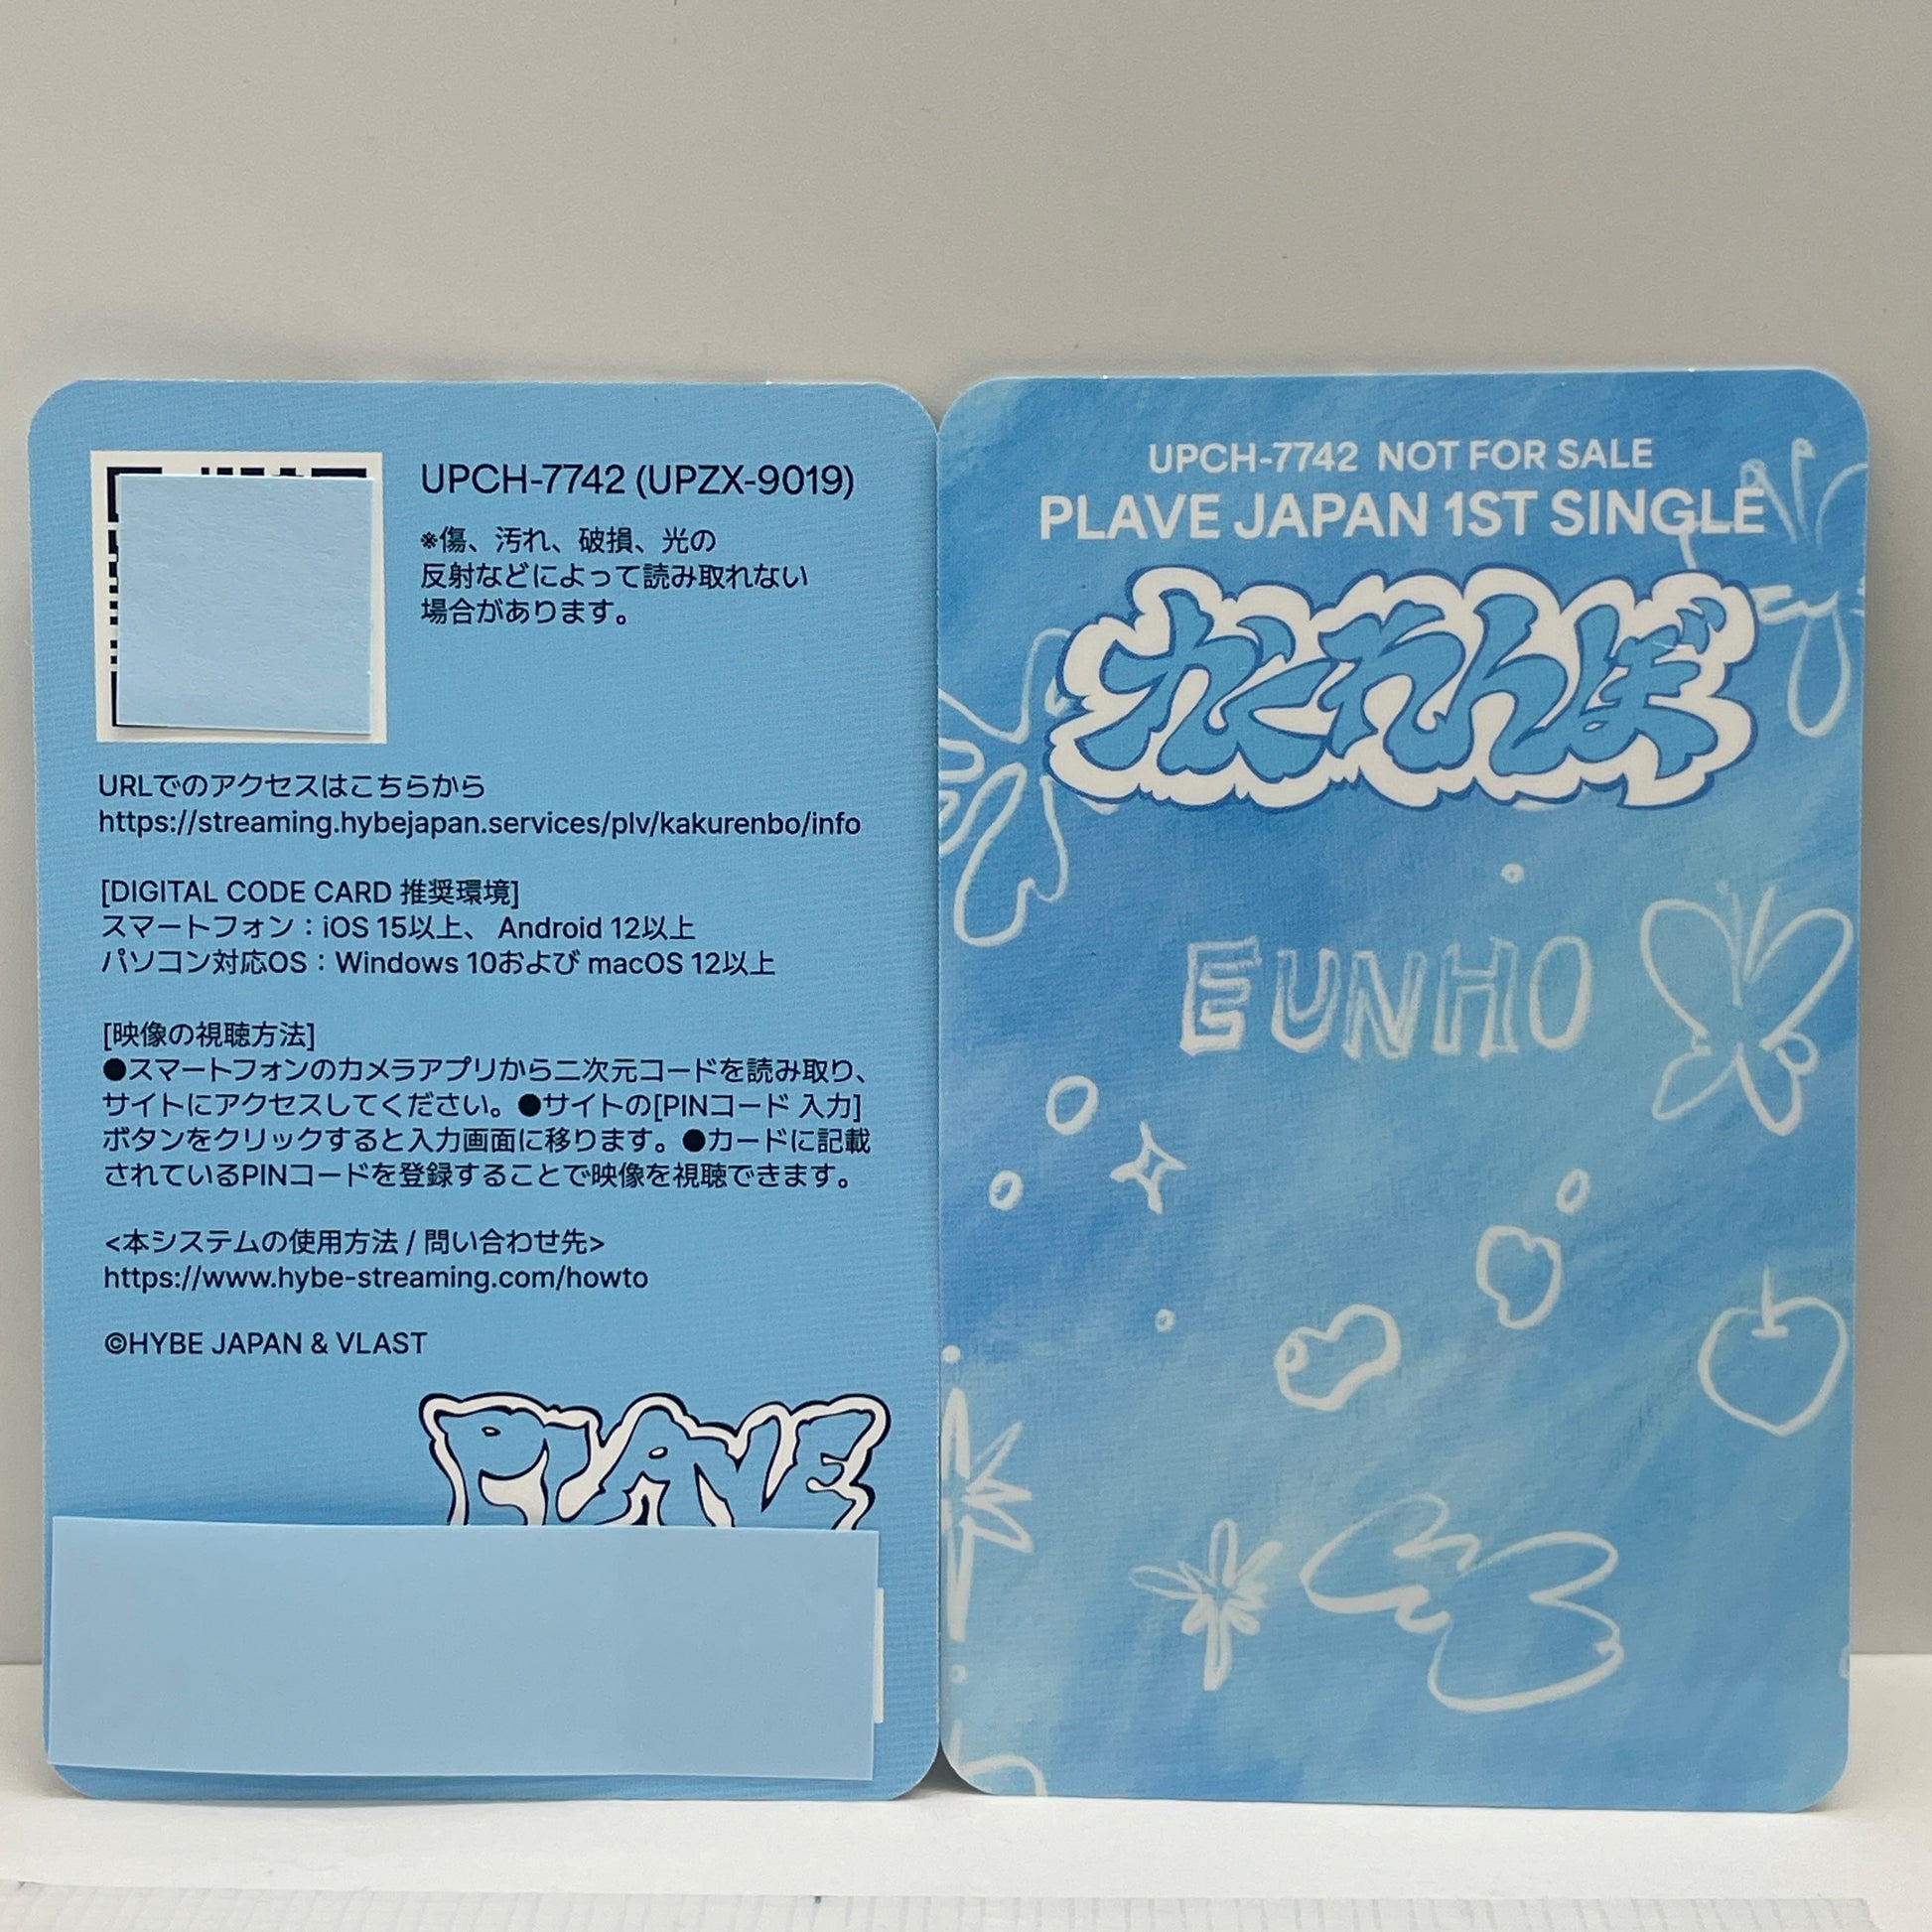 UPCH-7742 (UPZX-9019)
※傷、汚れ、破損、光の
反射などによって読み取れない
場合があります。
URLでのアクセスはこちらから
https://streaming.hybejapan.services/plv/kakurenbo/info
[DIGITAL CODE CARD 推奨環境]
スマートフォン：iOS 15以上、 Android 12以上
パソコン対応OS：Windows 10および macOS 12以上
[映像の視聴方法]
●スマートフォンのカメラアプリから二次元コードを読み取り、
サイトにアクセスしてください。●サイトの[PINコード 入力]
ボタンをクリックすると入力画面に移ります。●カードに記載
されているPINコードを登録することで映像を視聴できます。
<本システムの使用方法 / 問い合わせ先>
https://www.hybe-streaming.com/howto
©HYBE JAPAN & VLAST
PLAVE
UPCH-7742 NOT FOR SALE
PLAVE JAPAN 1ST SINGLE
かくれんぼ
EUNHO